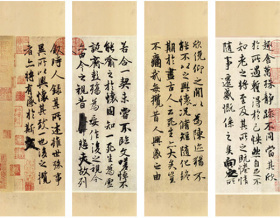 趣舍萬殊靜躁不同當其欣
於所遇蹔得於己快然自足不
知老之將至及其所之既惓情
隨事遷感慨係之矣向之所
欣俛仰之閒以為陳迹猶不
能不以之興懷況脩短隨化終
期於盡古人云死生亦大矣豈
不痛哉每攬昔人興感之由
若合一契未嘗不臨文嗟悼不
能喻之於懷固知一死生為虛
誕齊彭殤為妄作後之視今
亦由今之視昔悲夫故列
敘時人錄其所述雖世殊事
異所以興懷其致一也後之攬
者亦將有感於斯文